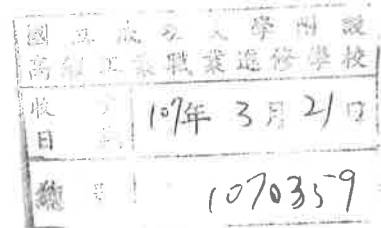 國立成功大學附設
高級工業職業進修學校
收文日期 107年3月21日
總號 1070359